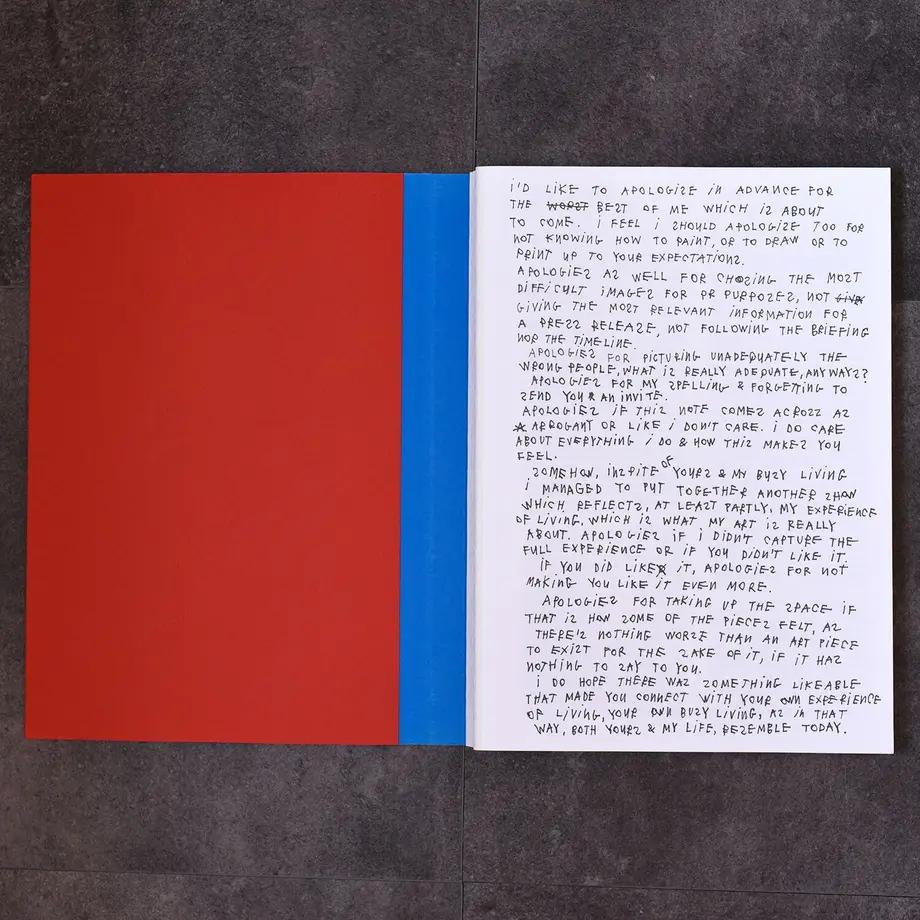 i'D LIKE TO APOLOGISE in ADVANCE FOR
THE WORST BEST OF ME WHICH iS ABOUT
TO COME. i FEEL i SHOULD APOLOGIZE TOO FOR
NOT KNOWiNG HOW TO PAiNT, OR TO DRAW OR TO
PRiNT UP TO YOUR EXPECTATiONS.
APOLOGiES AS WELL FOR CHOOSING THE MOST
DiFFiCULT iMAGES FOR PR PURPOSES, NOT GiVE
GiVING THE MOST RELEVANT iNFORMATiON FOR
A PRESS RELEASE, NOT FOLLOWING THE BRiEFiNG
NOR THE TiMELiNE.
APOLOGIES FOR PiCTURiNG UNADEQUATELY THE
WRONG PEOPLE, WHAT iS REALLY ADEQUATE, ANYWAYS?
APOLOGiES FOR MY SPELLING & FORGETTiNG TO
SEND YOU AN iNViTE.
APOLOGiES iF THiS NOTE COMES ACROSS AS
A ARROGANT OR LiKE i DON'T CARE. i DO CARE
ABOUT EVERYTHiNG i DO & HOW THiS MAKES YOU
FEEL.
SOMEHOW, iNSPiTE OF YOURS & MY BUSY LiViNG
i MANAGED TO PUT TOGETHER ANOTHER SHOW
WHiCH REFLECTS, AT LEAST PARTLY, MY EXPERiENCE
OF LiViNG, WHiCH iS WHAT MY ART iS REALLY
ABOUT. APOLOGiES iF i DiDN'T CAPTURE THE
FULL EXPERiENCE OR iF YOU DiDN'T LiKE iT.
iF YOU DiD LiKE iT, APOLOGiES FOR NOT
MAKiNG YOU LiKE iT EVEN MORE.
APOLOGiES FOR TAKiNG UP THE SPACE iF
THAT iS HOW SOME OF THE PiECES FELT, AS
THERE'S NOTHiNG WORSE THAN AN ART PiECE
TO EXiST FOR THE SAKE OF iT, iF iT HAS
NOTHiNG TO SAY TO YOU.
i DO HOPE THERE WAS SOMETHiNG LiKEABLE
THAT MADE YOU CONNECT WiTH YOUR OWN EXPERiENCE
OF LiViNG, YOUR OWN BUSY LiViNG, AS iN THAT
WAY, BOTH YOURS & MY LiFE, RESEMBLE TODAY.